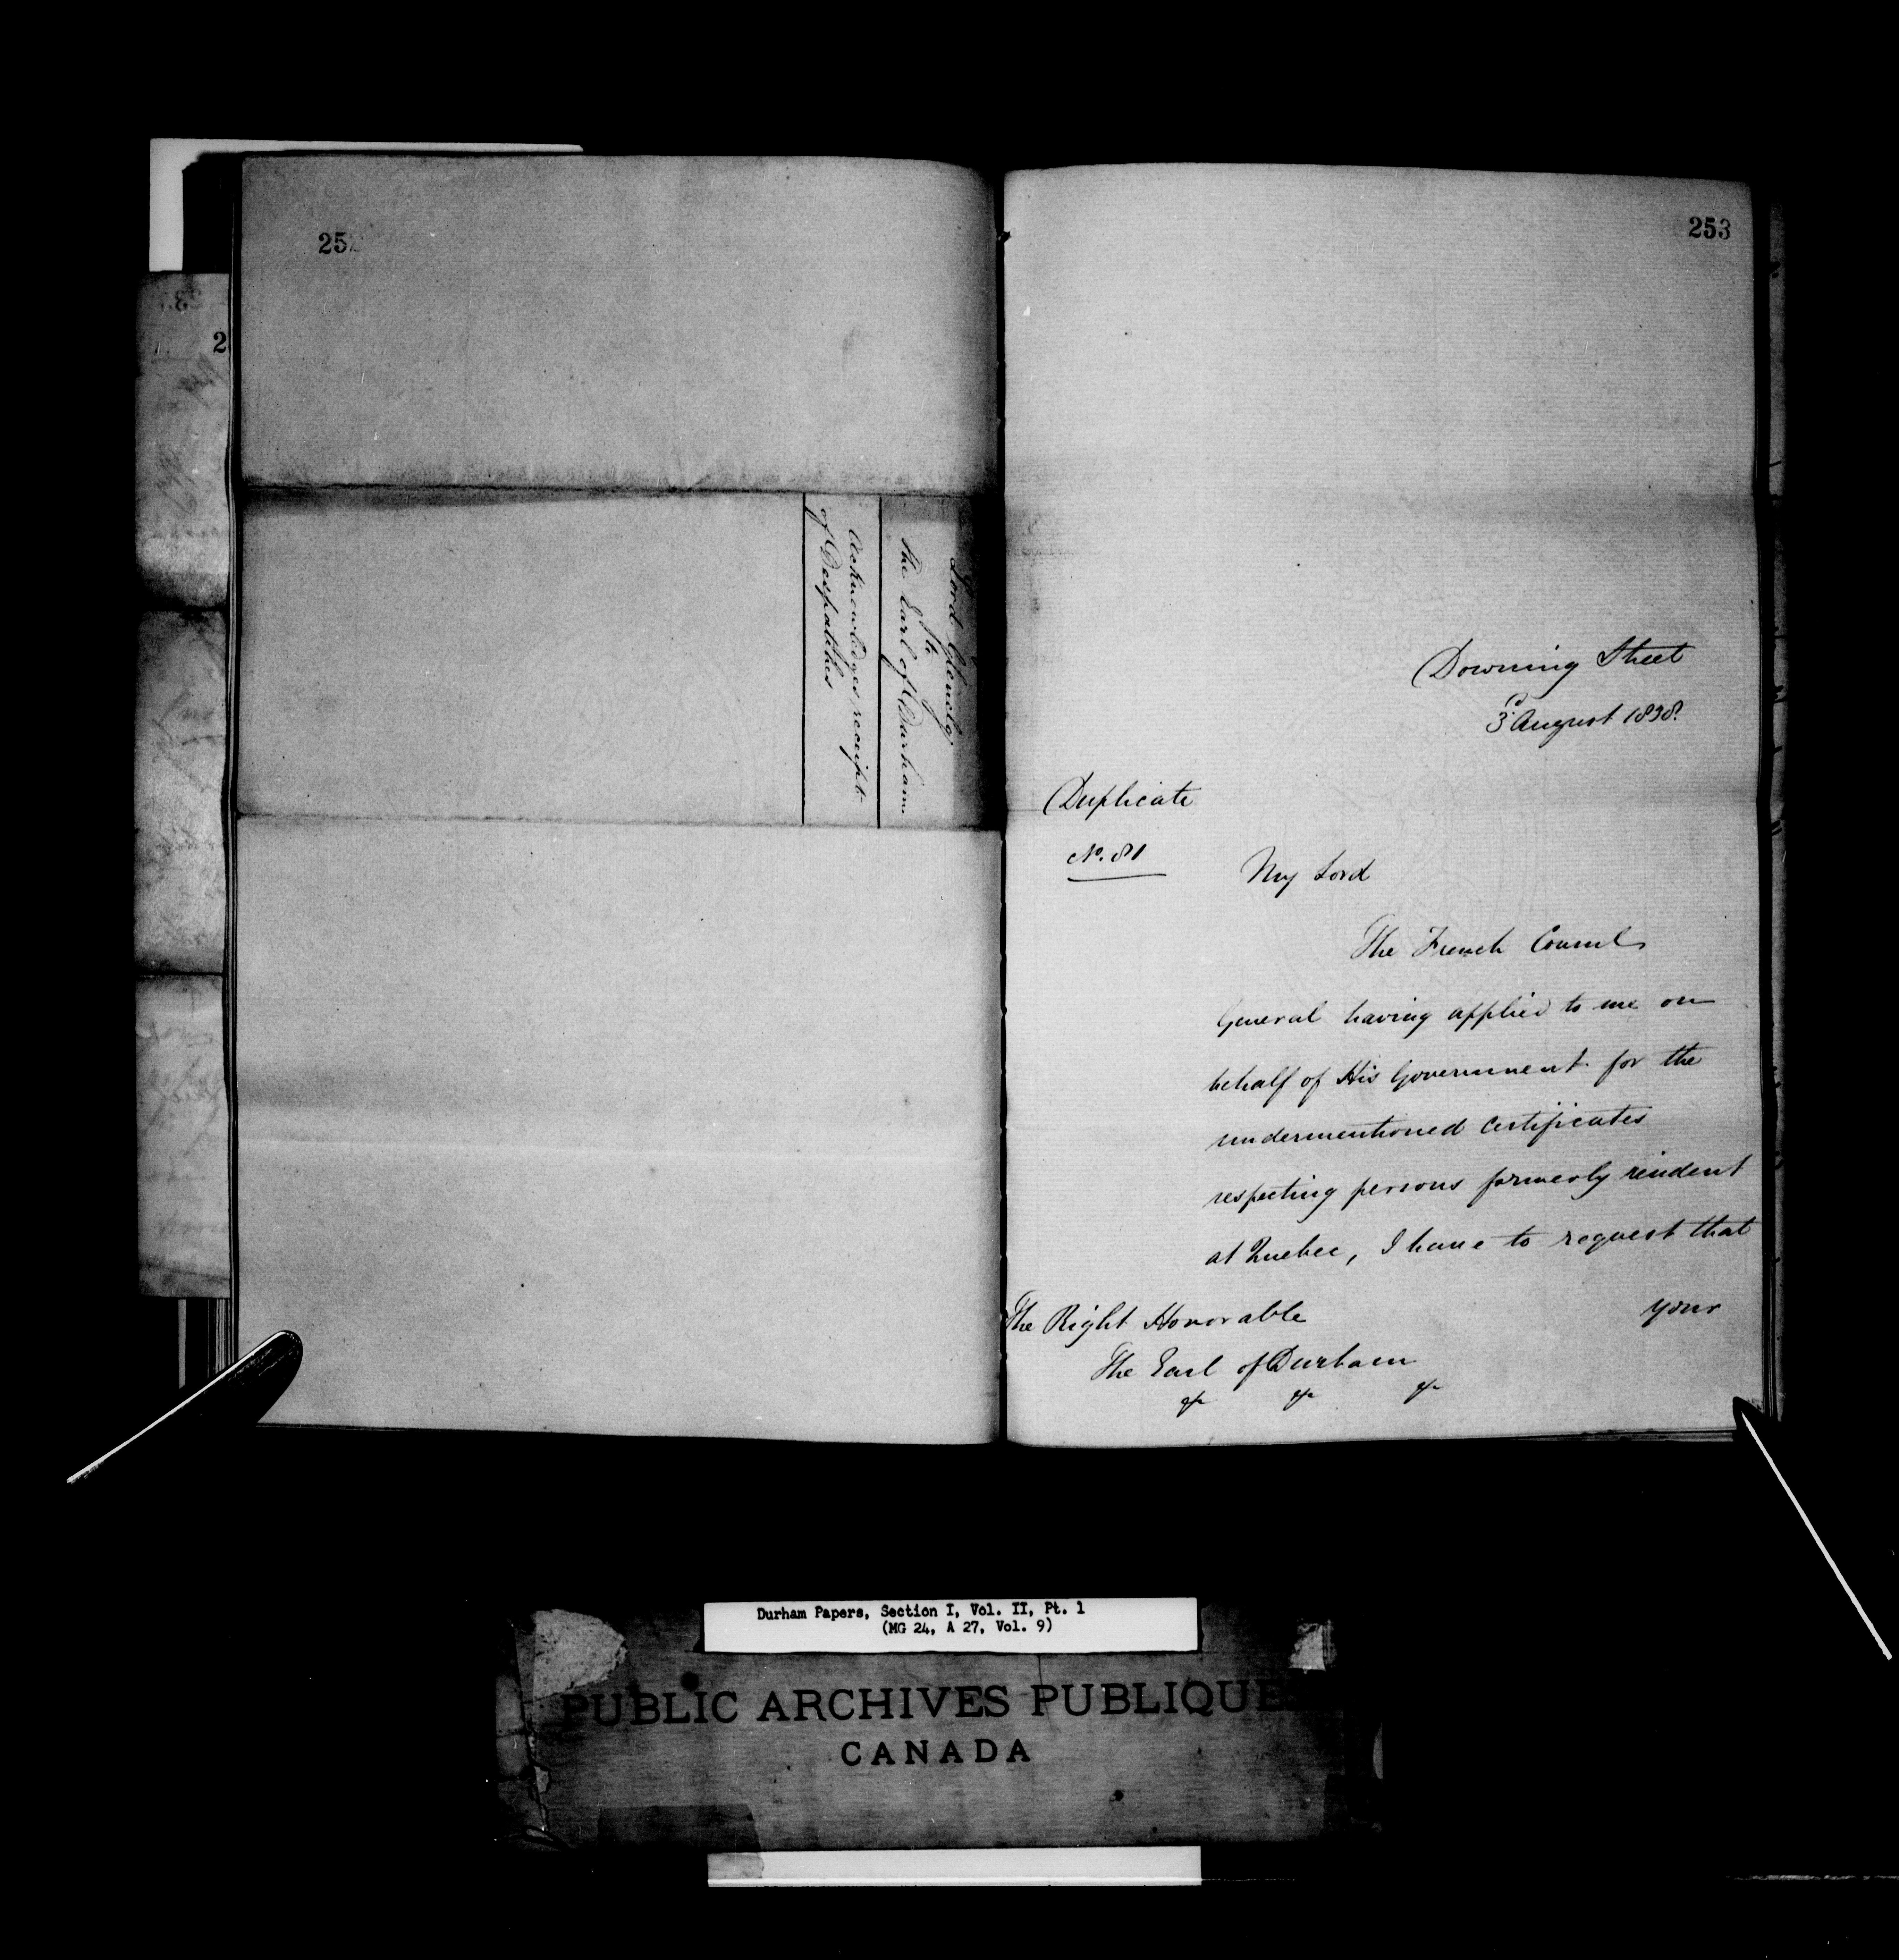 252
Lord Glenelg
to
The Earl of Durham
Acknowledges receipt
of Despatches
2
253
Downing Street
3d. August 1838.
Duplicate
No. 81
My Lord
The French Consul
General having applied to me on
behalf of His Government for the
undermentioned Certificates
respecting persons formerly resident
at Quebec, I have to request that
your
The Right Honorable
The Earl of Durham
&c &c &c
Durham Papers, Section I, Vol. II, Pt. 1
(MG 24, A 27, Vol. 9)
PUBLIC ARCHIVES PUBLIQUE
CANADA